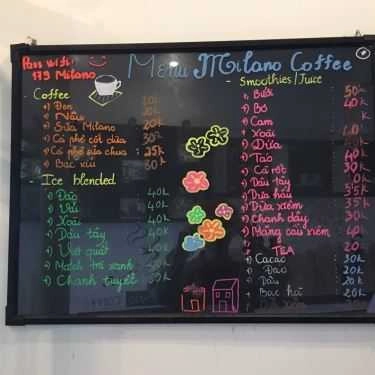 Pass wifi
179 Milano
Menu Milano Coffee
Coffee
- Đen 20k
- Nâu
- Sữa Milano 20k
- Cà phê cốt dừa 30k
- Cà phê sữa chua : 25k
- Bạc xỉu 30k
- Ice blended
- Đào 40k
- Vải 40k
- Xoài 40k
- Dâu tây 40k
- Việt quất 40k
- Match trà xanh 40k
- Chanh tuyết 40k
- Smoothies / Juice
- Bưởi 50k
- Bơ 40k
- Cam
- Xoài 40
- Dứa
- Táo 40k
- Cà rốt 30k
- Dâu tây
- Dưa hấu 35k
- Dừa xiêm 35k
- Chanh dây 30k
- Mãng cầu xiêm 40k
- TEA 20k
- Cacao 30k
- Đào 20k
- Dâu 20k
- Bạc hà 20k